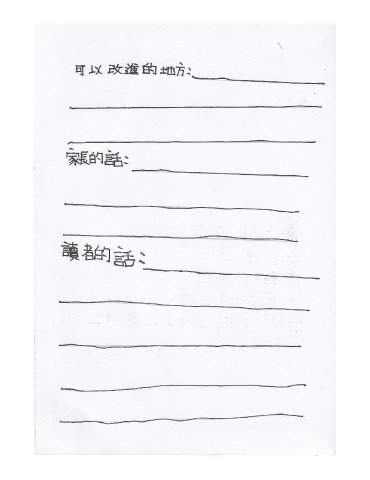 可以改進的地方:
家長的話:
讀者的話: